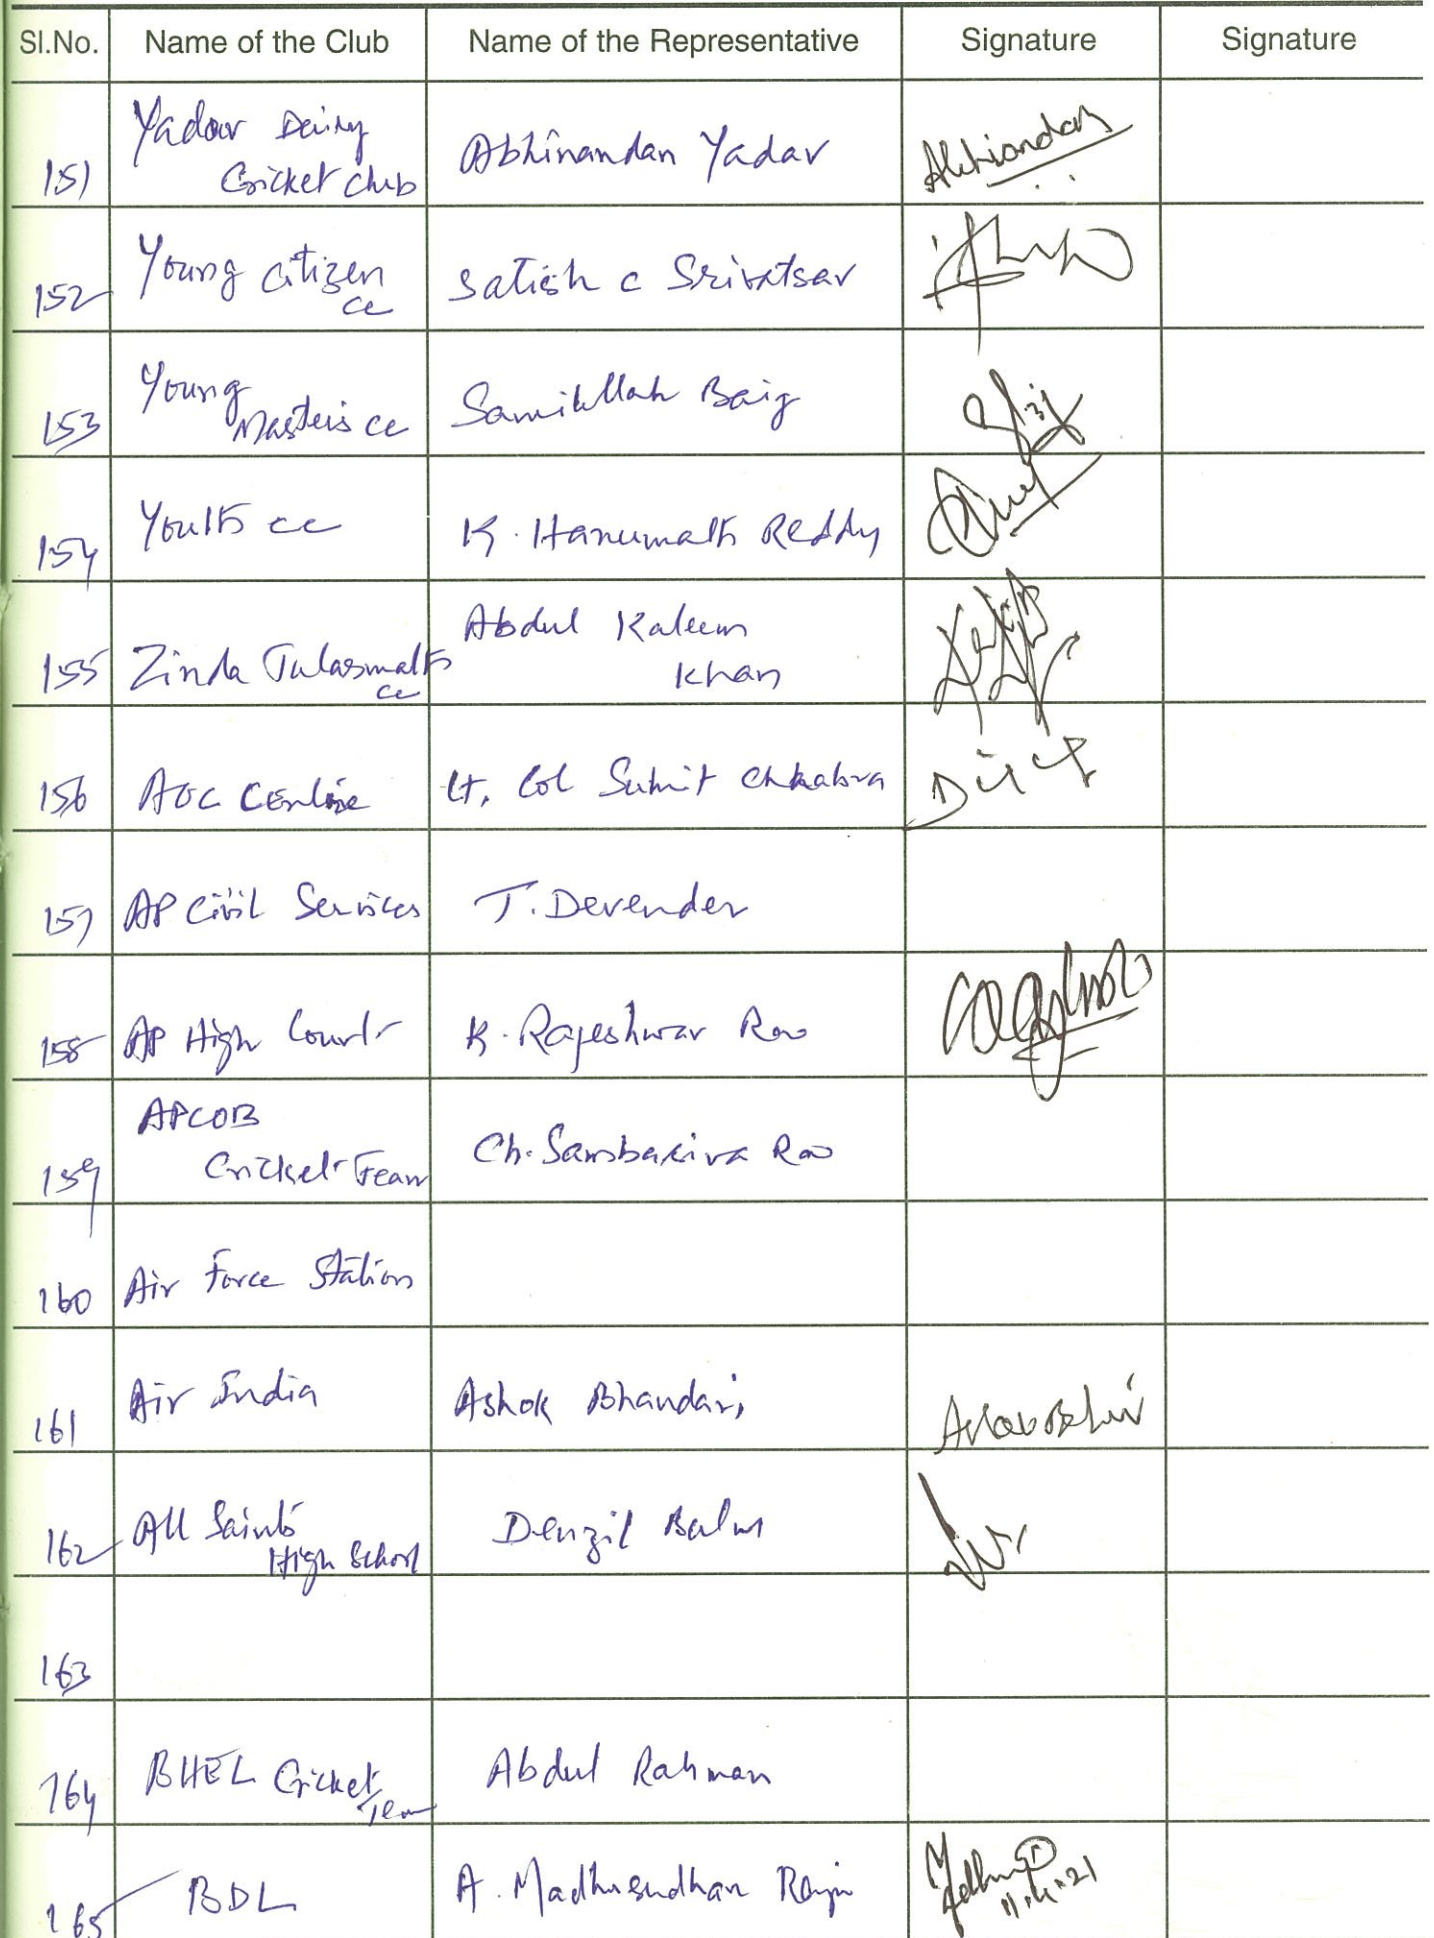 Sl.No. Name of the Club Name of the Representative Signature Signature
Yadav Dairy
151 Cricket Club Abhinandan Yadav
152 Young Citizen Satish C Srivatsav
CC
Young
153 Masters CC Samiullah Baig
154 Youth CC K. Hanumath Reddy
Abdul Kaleem
155 Zinda Tulasmath Khan
CC
156 AOC Centre Lt. Col Sumit Chhabra
157 AP Civil Services T. Devender
158 AP High Court K. Rajeshwar Rao
APCOB
159 Cricket Team Ch. Sambasiva Rao
160 Air Force Station
161 Air India Ashok Bhandari
162 All Saints Denzil Balm
High School
163
164 BHEL Cricket Abdul Rahman
Team
165 BDL A. Madhusudhan Raju
11.4.21